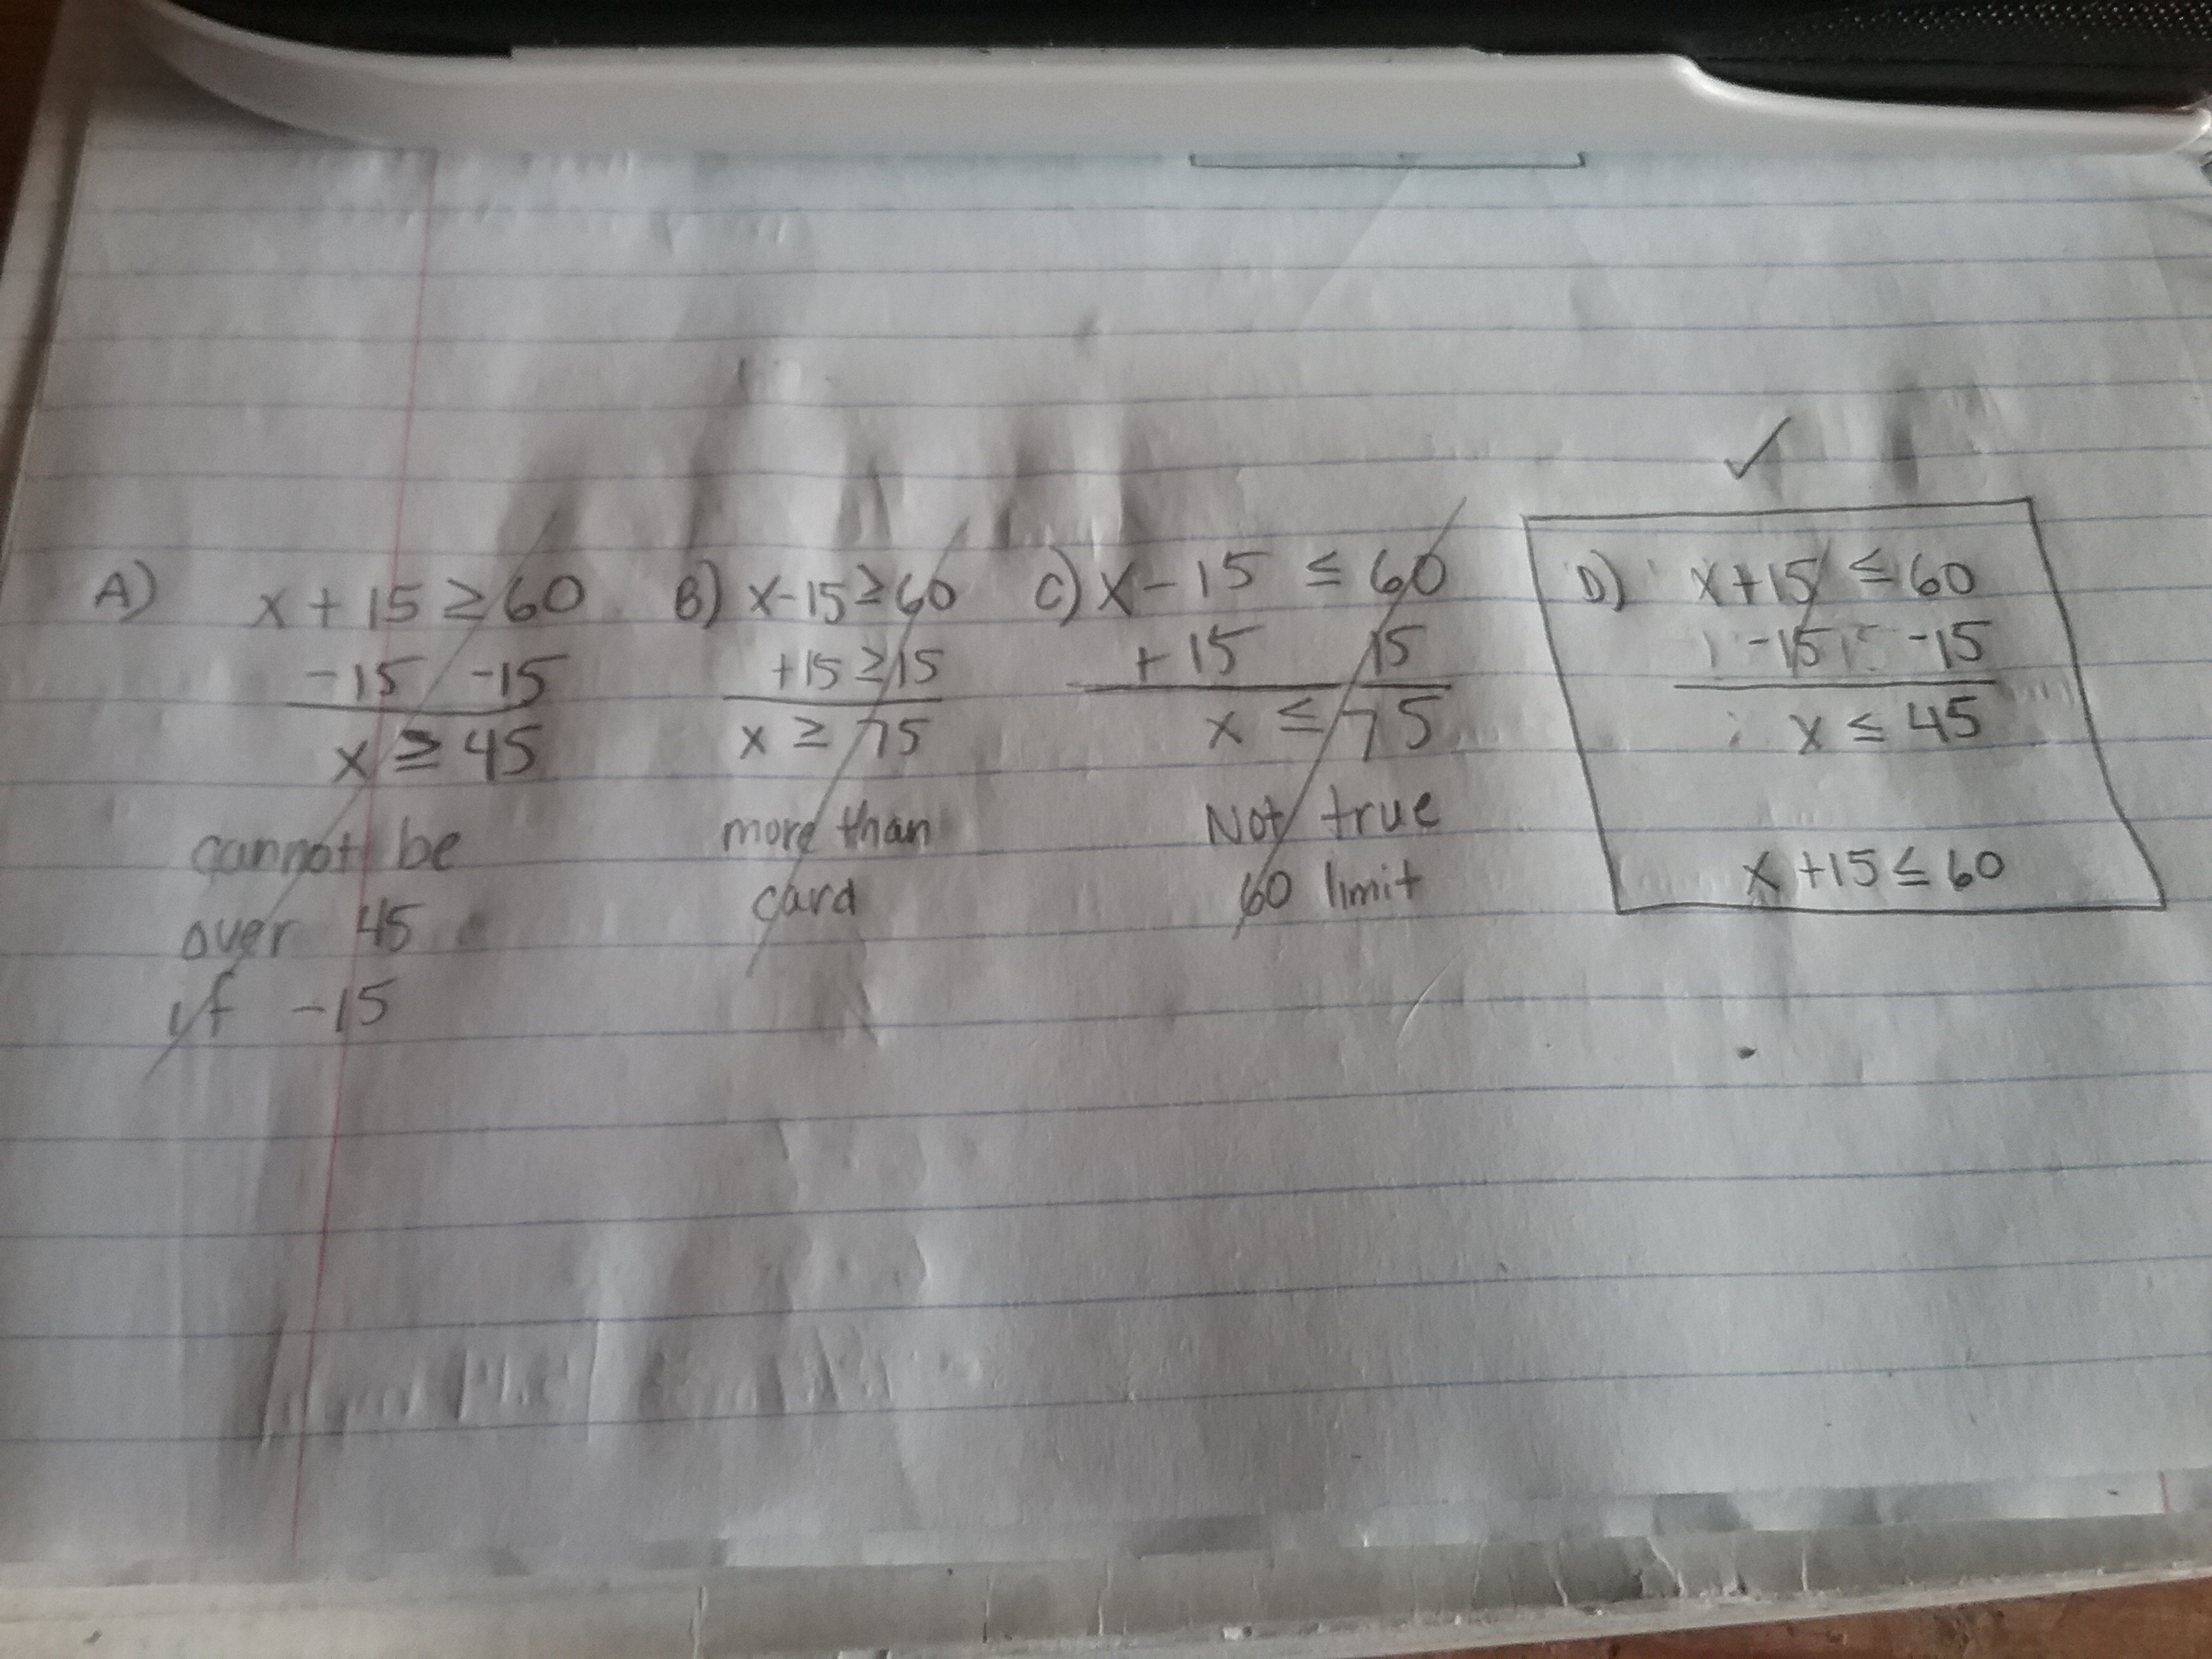 A) x + 15 ≥ 60
-15 -15
x ≥ 45
cannot be
over 45
if -15
B) x-15 ≥ 60
+15 ≥ 15
x ≥ 75
more than
card
C) x - 15 ≤ 60
+ 15 15
x ≤ 75
Not true
60 limit
✓
D) x+15 ≤ 60
-15 -15
x ≤ 45
x +15 ≤ 60